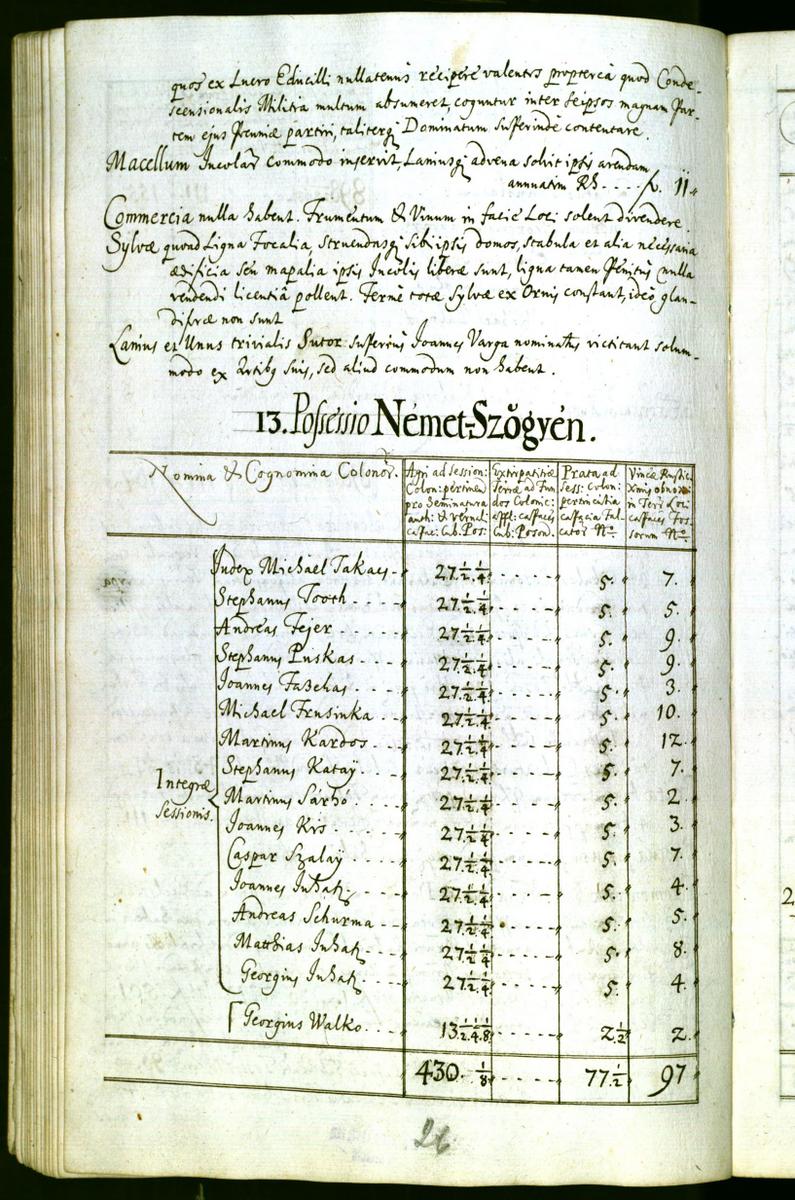 quos ex Lucro Educilli nullatenus recipere valentes propterea quod Conde-
scensionalis Militia multum absumeret, coguntur inter seipsos magnam Par-
tem ejus Pecuniæ partiri, taliterq; Dominatum sufferinde contentare.
Macellum Incolar commodo inservit, Laniusq; advena solvit ipsis arendam
annuatim Rh. . . . . f. 11 „
Commercia nulla habent. Frumentum & Vinum in facie Loci solent divendere.
Sylvæ quoad Ligna Focalia, struendasq; sibi ipsis domos, stabula et alia necessaria
ædificia seu mapalia ipsis Incolis liberæ sunt, ligna tamen Penitus nulla
vendendi licentiâ pollent. Fermè totæ Sylvæ ex Ornis constant, ideò glan-
diferæ non sunt
Lanius et Unus trivialis Sutor Joannes Varga nominatus victitant solum-
modo ex Artibq suis, sed aliud commodum non habent.
13. Possessio Német-Szŏgyén.
Nomina & Cognomina Colonor. Agri ad Session: Colon: pertinen pro Seminatura aut: & vernali capac: Cub: Pos: Extirpatitiæ Terræ ad Fundos Colonic: capaces Cub: Poson. Prata ad Sess: Colon: pertinentia capacia Falcator Nº. Vineæ Rustic in Terr Loci capaces Fossorum Nº.
Integræ Sessionis.
Judex Michael Takacs - 27 1/2 1/4 . . . . . 5. 7.
Stephanus Tooth - 27 1/2 1/4 . . . . . 5. 5.
Andreas Fejer 27 1/2 1/4 . . . . . 5. 9.
Stephanus Puskas 27 1/2 1/4 . . . . . 5. 9.
Joannes 27 1/2 1/4 . . . . . 5. 3.
Michael Frusinka 27 1/2 1/4 . . . . . 5. 10.
Martinus Kardos 27 1/2 1/4 . . . . . 5. 12.
Stephanus Kataÿ 27 1/2 1/4 . . . . . 5. 7.
Martinus Sárhó 27 1/2 1/4 . . . . . 5. 2.
Joannes Kis 27 1/2 1/4 . . . . . 5. 3.
Caspar Szalaÿ 27 1/2 1/4 . . . . . 5. 7.
Joannes Juhatz 27 1/2 1/4 . . . . . 5. 4.
Andreas Schurma 27 1/2 1/4 . . . . . 5. 5.
Matthias Juhatz 27 1/2 1/4 . . . . . 5. 8.
Georgius Juhatz 27 1/2 1/4 . . . . . 5. 4.
Georgius Walko 13 1/2 1/4 1/8 . . . . . 2 1/2 2.
430. 1/8 . . . . . 77 1/2 97
26